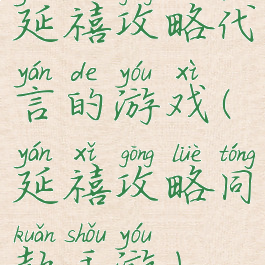 延禧攻略代
yán de yóu xì
言的游戏(
yán xǐ gōng lüè tóng
延禧攻略同
kuǎn shǒu yóu
款手游)